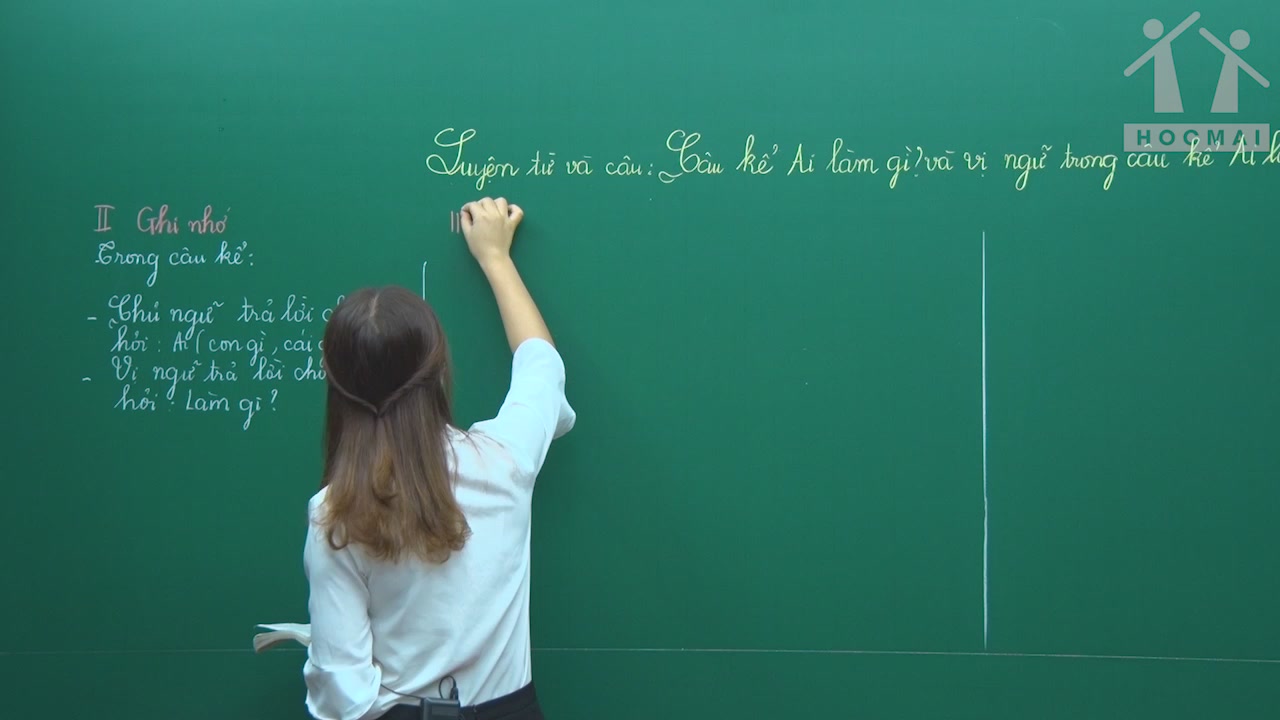 HOCMAI
Luyện từ và câu: Câu kể Ai làm gì? và vị ngữ trong câu kể Ai
II Ghi nhớ
II
Trong câu kể:
- Chủ ngữ trả lời
hỏi: Ai (con gì, cái
- Vị ngữ trả lời cho
hỏi: Làm gì?